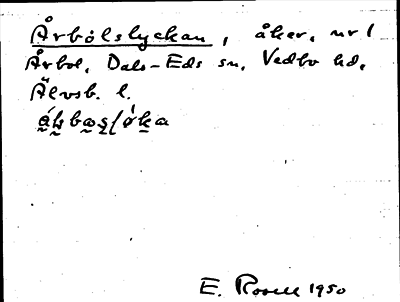 Årbolslyckan, åker, nr 1
Årbol, Dals-Eds sn, Vedbo hd,
Älvsb. l.
E. Rosell 1950